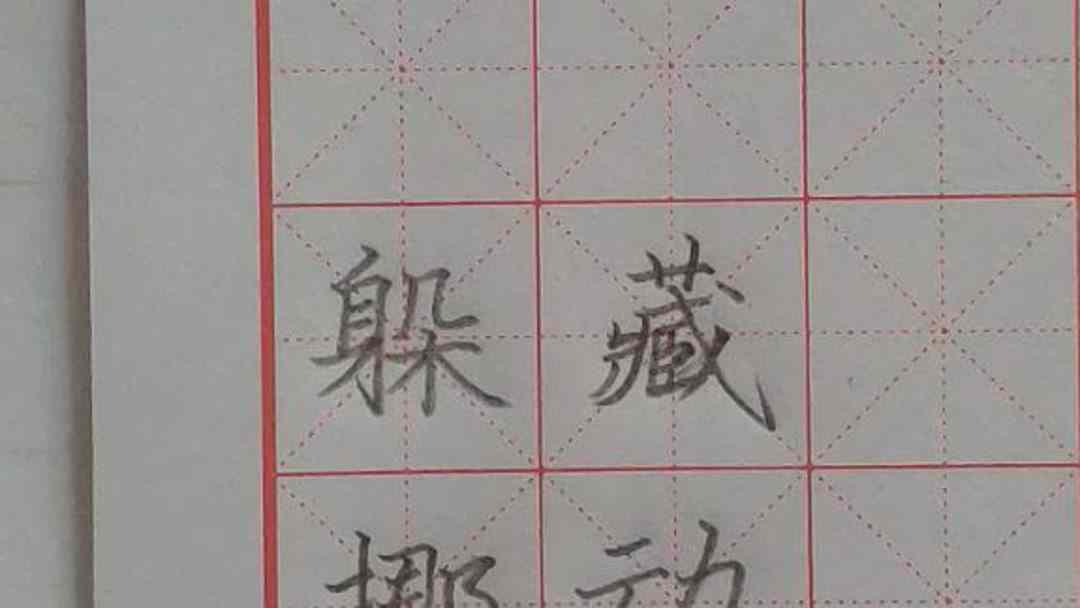 躲藏
挪动